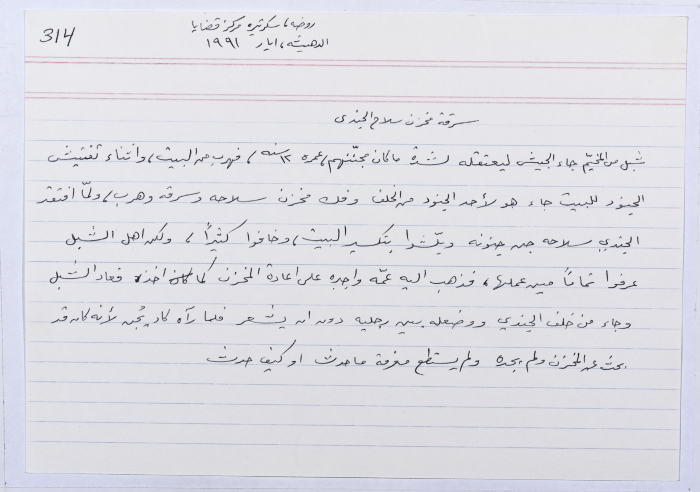 314
روضة، سكرتيرة مركز قضايا
الدهيشه، ايار ١٩٩١
سرقة مخزن سلاح الجندي
شبل من المخيّم جاء الجيش ليعتقله لشدّة ما كان مجنّنهم، عمره ١٢ سنه، فهرب من البيت، واثناء تفتيش
الجنود للبيت جاء هو لأحد الجنود من الخلف وفك مخزن سلاحه وسرقه وهرب، ولمّا افتقد
الجندي سلاحه جن جنونه وبلّشوا بتكسير البيت، وخافوا كثيراً، ولكن اهل الشبل
عرفوا تماماً مين عملها، فذهب اليه عمّه واجبره على اعادة المخزن كما اخذه فعاد الشبل
وجاء من خلف الجندي ووضعله بين رجليه دون ان يشعر فلما رآه كاد يُجن لأنه كان قد
بحث عن المخزن ولم يجده ولم يستطع معرفة ما حدث او كيف حدث